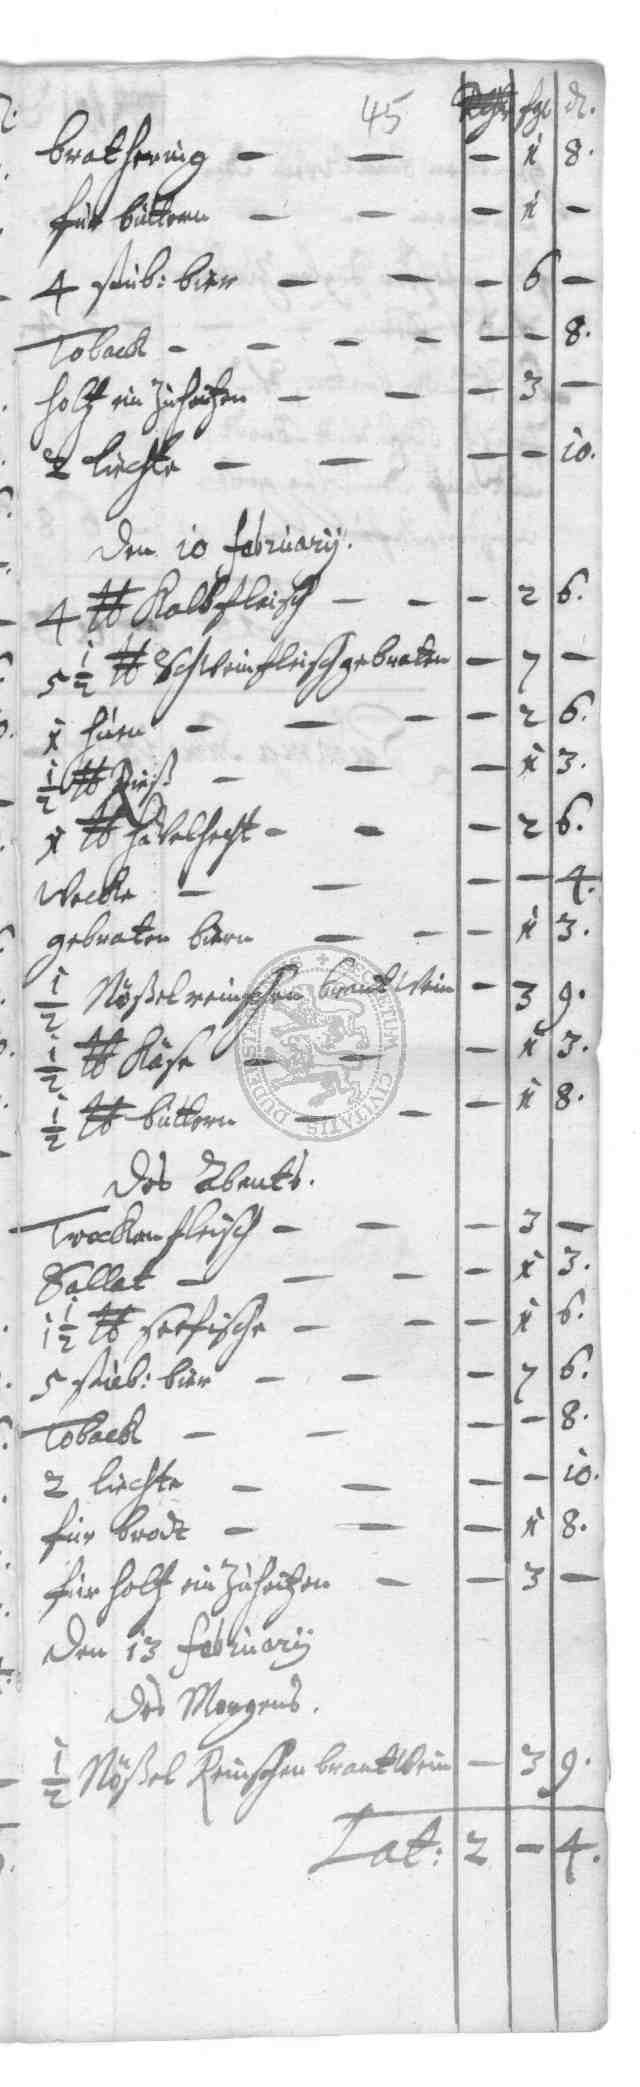 45 Rthlr sgl d.
brathering — — — 1 8.
für buttern — — — 1 —
4 stüb: bier — — — 6 —
Toback — — — — — — 8.
holtz ein Zuheitzen — — — 3 —
2 liechte — — — — 10.
Den 10 februarij.
4 ℔ Kalbfleisch — — — 2 6.
5 1/2 ℔ Schweinfleisch gebraten — 7 —
1 huen — — — — 2 6.
1/2 ℔ Rieß — — — 1 3.
1 ℔ Havelhecht — — — 2 6.
Wecke — — — — 4.
gebraten biern — — — 1 3.
1/2 Nößel reinschen brantwein — 3 9.
1/2 ℔ Käse — — — 1 3.
1/2 ℔ buttern — — — 1 8.
Des Abents.
Trocken fleisch — — — 3 —
Sallat — — — — 1 3.
1 1/2 ℔ seefische — — — 1 6.
5 stüb: bier — — — 7 6.
Toback — — — — 8.
2 liechte — — — — 10.
für brodt — — — 1 8.
für holtz ein Zuheitzen — — 3 —
Den 13 februarij
Des Morgens.
1/2 Nößel Reinschen brantwein — 3 9.
Lat: 2 — 4.
CIVITATIS DUDERST